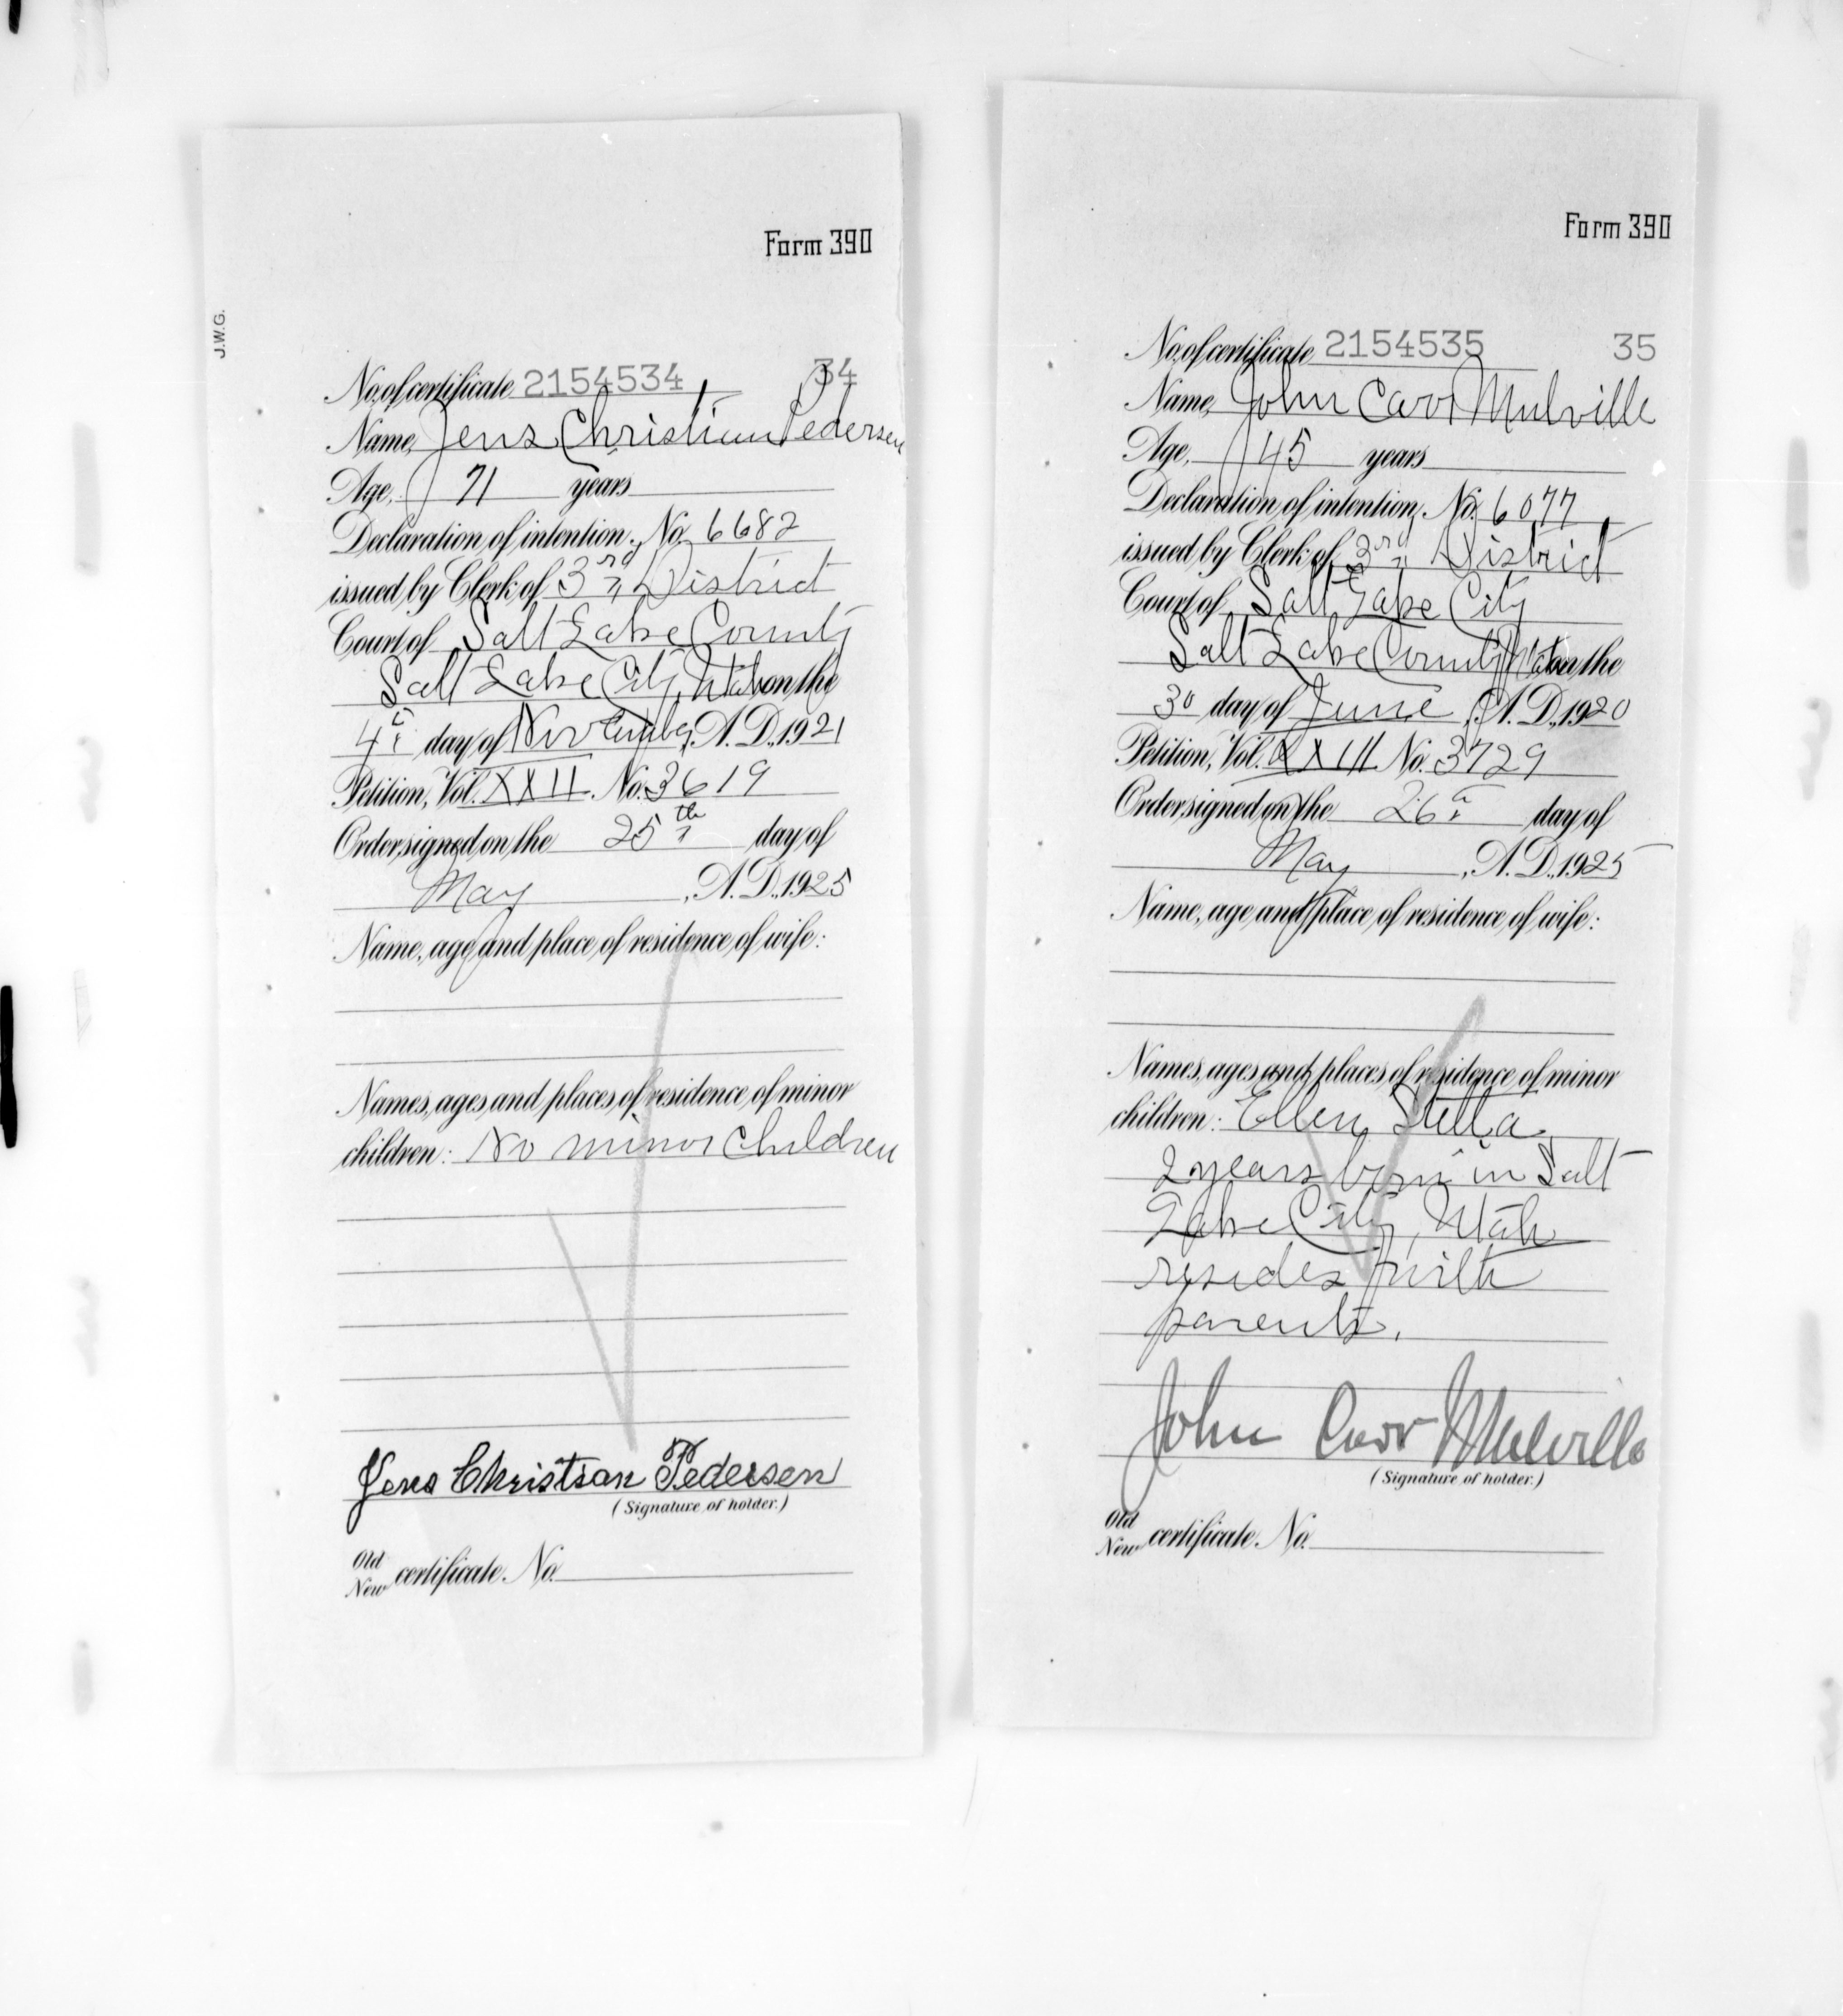 J.W.G.
Form 390
No. of certificate 2154534 34
Name, Jens Christian Pedersen
Age, 71 years
Declaration of intention, No. 6682
issued by Clerk of 3rd District
Court of Salt Lake County
Salt Lake City, Utah on the
4th day of November, A.D., 1921
Petition, Vol. XXII. No. 3619
Order signed on the 25th day of
May, A.D., 1925
Name, age and place of residence of wife:
Names, ages and places of residence of minor
children: No minor children
Jens Christian Pedersen
(Signature of holder.)
Old
New certificate No.
Form 390
No. of certificate 2154535 35
Name, John Carr Mulville
Age, 45 years
Declaration of intention, No. 6077
issued by Clerk of 3rd District
Court of Salt Lake City
Salt Lake County Utah on the
30 day of June, A.D., 1920
Petition, Vol. XXIII No. 3729
Order signed on the 26th day of
May, A.D., 1925
Name, age and place of residence of wife:
Names, ages and places of residence of minor
children: Ellen Stella
2 years born in Salt
Lake City, Utah
resides with
parents.
John Carr Mulville
(Signature of holder.)
Old
New certificate No.